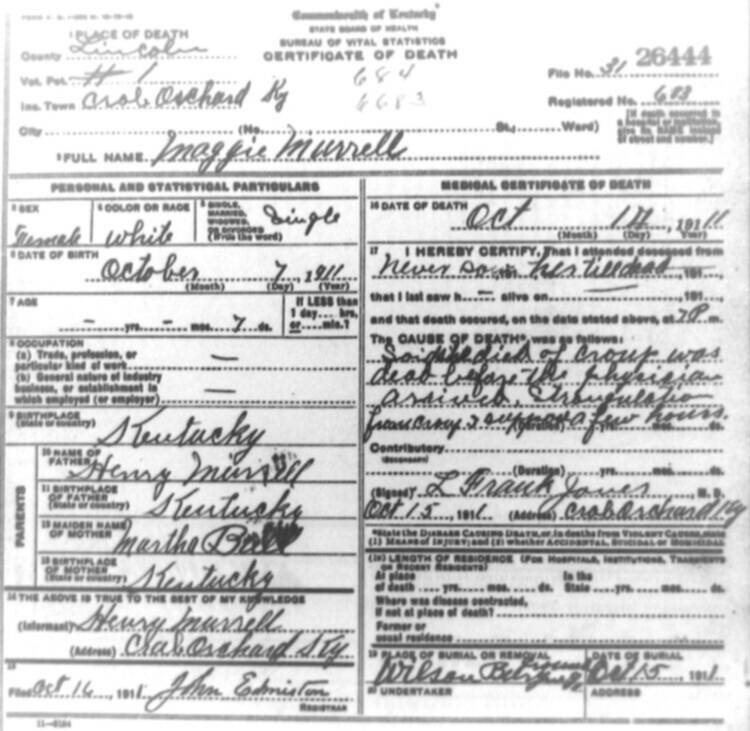 Commonwealth of Kentucky
STATE BOARD OF HEALTH
BUREAU OF VITAL STATISTICS
CERTIFICATE OF DEATH
1 PLACE OF DEATH
County Lincoln
Vot. Pct. #1
Inc. Town Crab Orchard Ky
684
6683
File No. 31 26444
Registered No. 683
City (No. St., Ward)
[If death occurred in a hospital or institution, give its NAME instead of street and number.]
2 FULL NAME Maggie Murrell
PERSONAL AND STATISTICAL PARTICULARS
3 SEX
Female
4 COLOR OR RACE
White
5 SINGLE, MARRIED, WIDOWED, OR DIVORCED (Write the word)
Single
6 DATE OF BIRTH
October 7 1911
(Month) (Day) (Year)
7 AGE
- yrs. - mos. 7 ds.
If LESS than 1 day hrs. or min.?
8 OCCUPATION
(a) Trade, profession, or particular kind of work —
(b) General nature of industry business, or establishment in which employed (or employer) —
9 BIRTHPLACE
(State or country)
Kentucky
PARENTS
10 NAME OF FATHER
Henry Murrell
11 BIRTHPLACE OF FATHER
(State or country)
Kentucky
12 MAIDEN NAME OF MOTHER
Martha
13 BIRTHPLACE OF MOTHER
(State or country)
Kentucky
14 THE ABOVE IS TRUE TO THE BEST OF MY KNOWLEDGE
(Informant) Henry Murrell
(Address) Crab Orchard Ky
15
Filed Oct 16, 1911 John Edmiston
REGISTRAR
11-6184
MEDICAL CERTIFICATE OF DEATH
16 DATE OF DEATH
Oct 1911
(Month) (Day) (Year)
17 I HEREBY CERTIFY, That I attended deceased from
Never saw her till dead
that I last saw h— alive on — , 191
and that death occured, on the date stated above, at 7 P m.
The CAUSE OF DEATH* was as follows:
Said died of croup was
dead before the physician
arived. Strangulation
from croup a few hours.
Contributory
(SECONDARY)
(Duration) yrs. mos. ds.
(Signed) L Frank Jones M. D.
Oct 15, 1911 (Address) Crab Orchard Ky
*State the DISEASE CAUSING DEATH, or, in deaths from VIOLENT CAUSES, state
(1) MEANS OF INJURY; and (2) whether ACCIDENTAL, SUICIDAL or HOMICIDAL
18 LENGTH OF RESIDENCE (FOR HOSPITALS, INSTITUTIONS, TRANSIENTS OR RECENT RESIDENTS)
At place of death yrs. mos. ds.
In the State yrs. mos. ds.
Where was disease contracted, if not at place of death?
Former or usual residence
19 PLACE OF BURIAL OR REMOVAL
Wilson
DATE OF BURIAL
Oct 15 1911
20 UNDERTAKER
ADDRESS